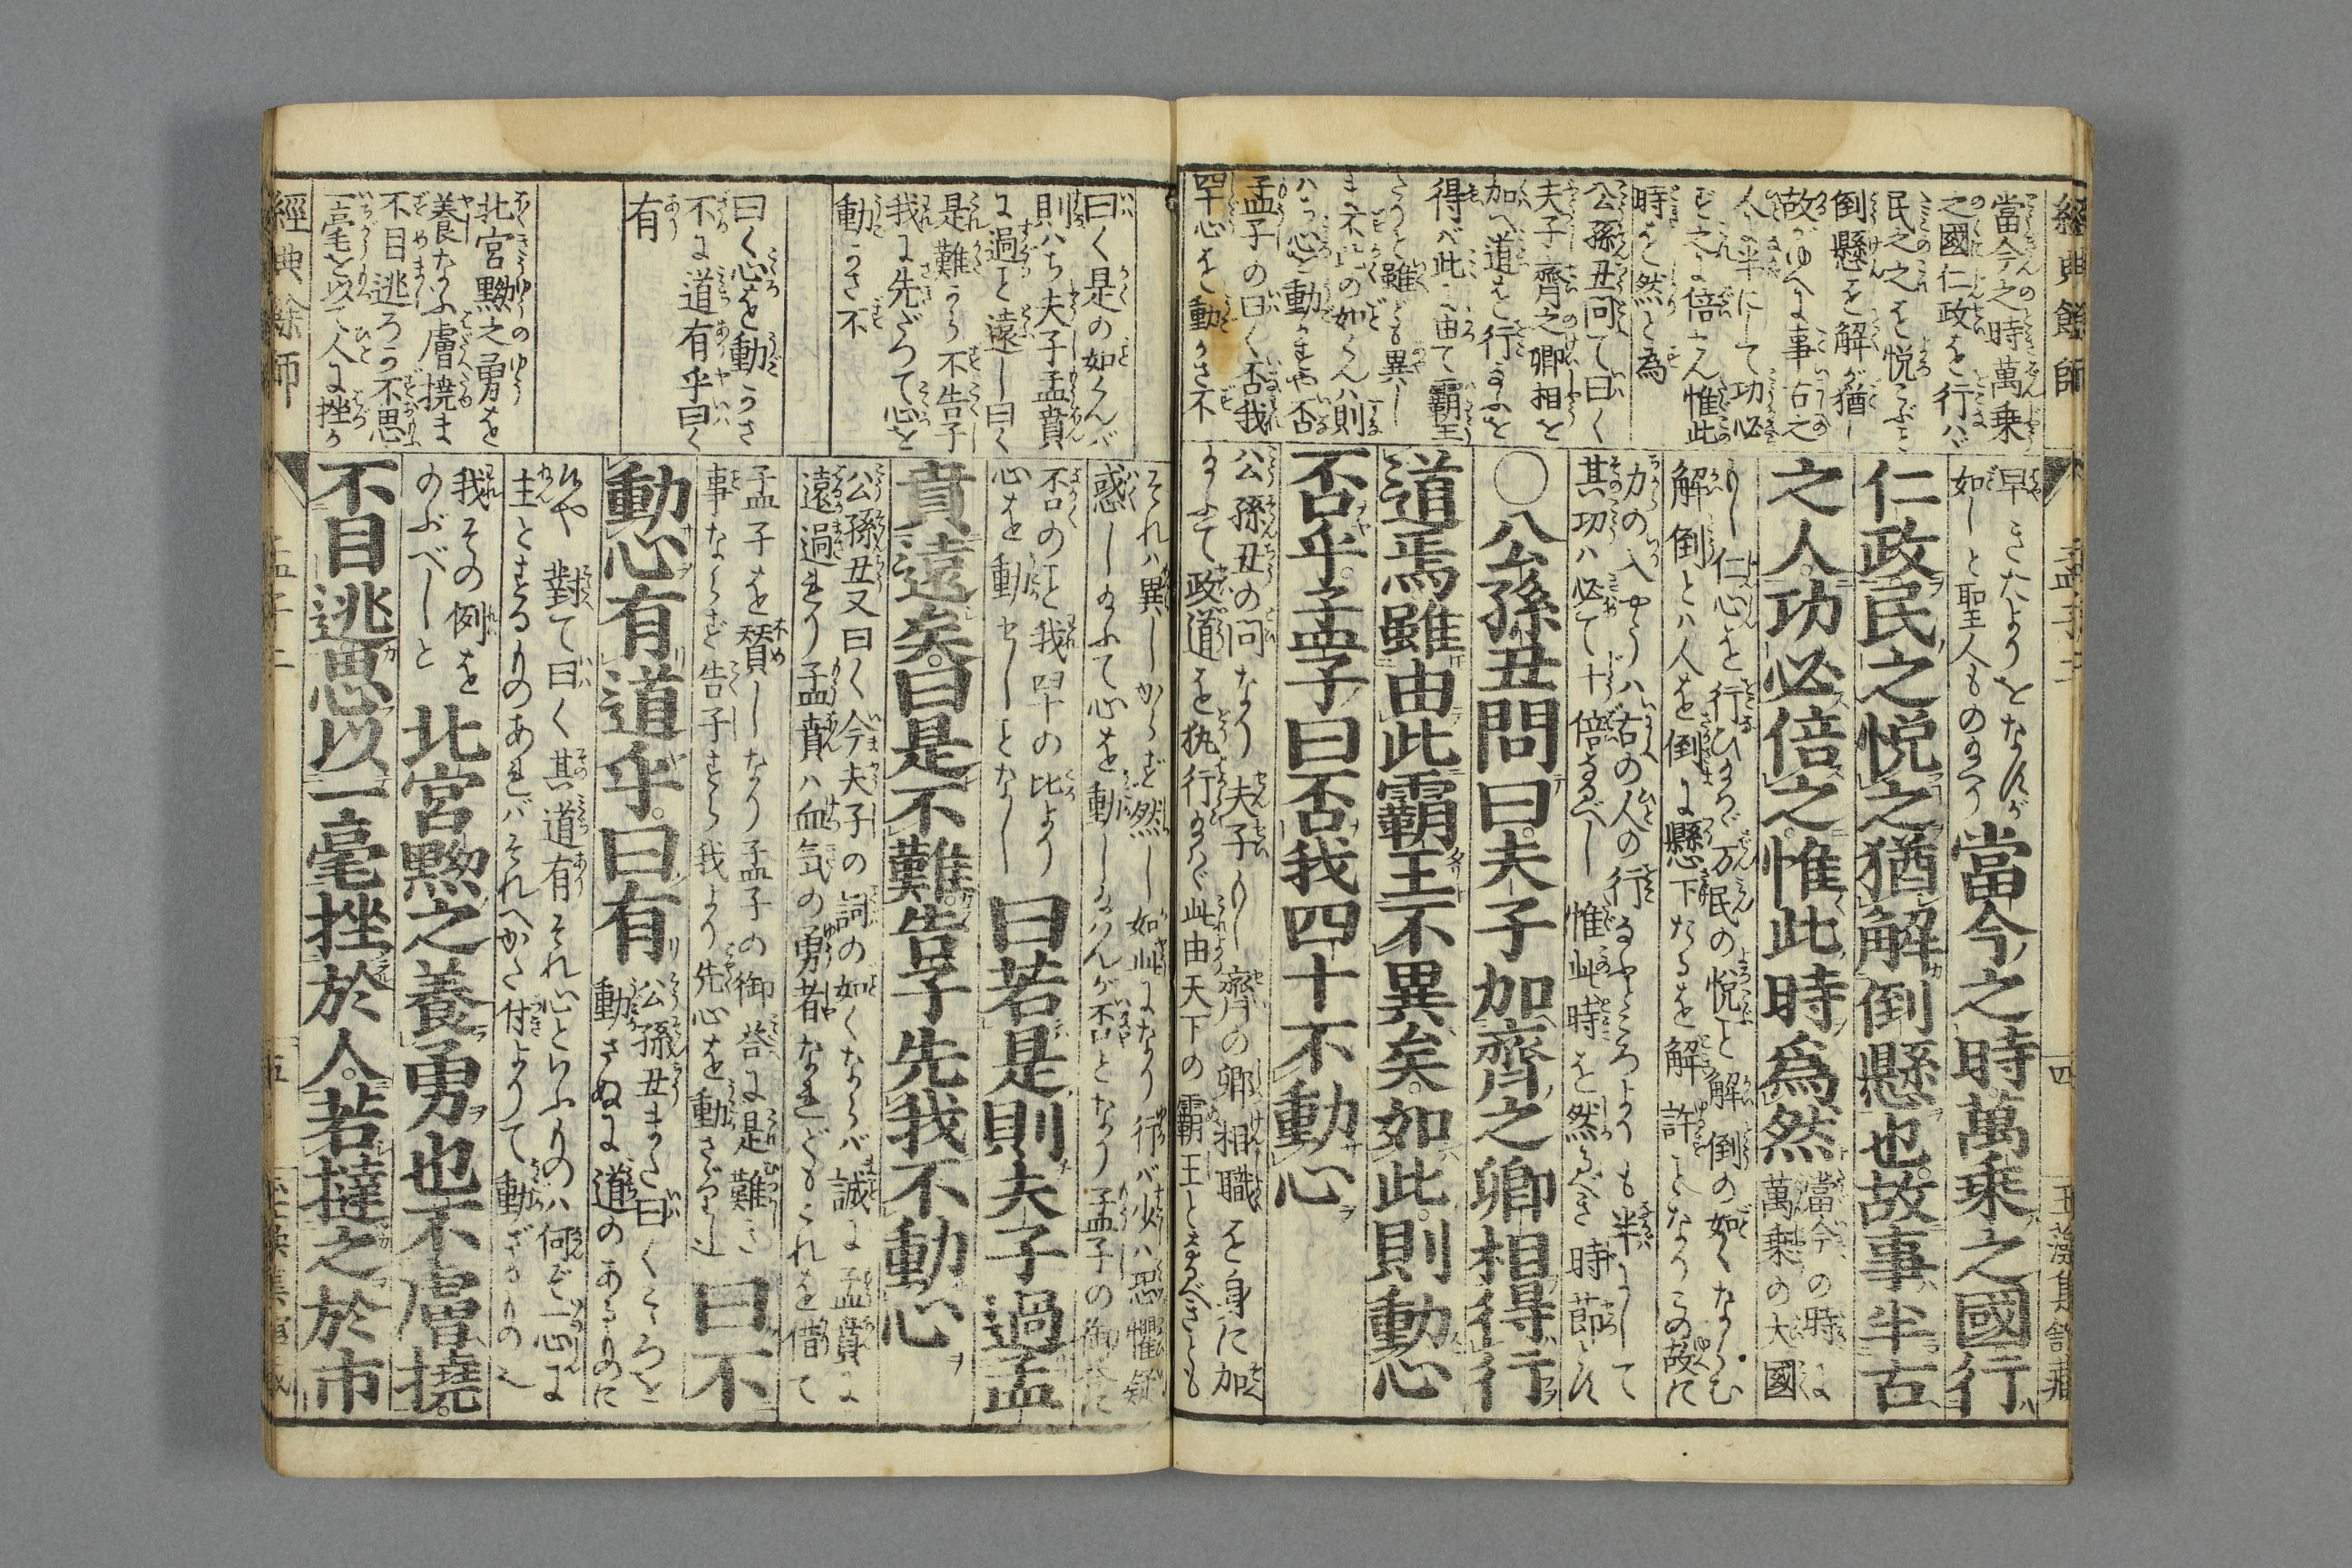 經典餘師
當今之時萬乗
之國仁政を行バ
民之之を悦こぶこと
倒懸を解が猶し
故がゆへに事古之
人の半にして功必
ず之に倍さん惟此
時を然と為
公孫丑問て曰く
夫子齊之卿相を
加へ道を行ふを
得バ此に由て霸王
たりと雖ども異し
ま不此の如くんバ則
ハち心を動かすや否
孟子の曰く否我
四十心を動かさ不
孟子二
四
早きたよりをなんが
如しと聖人ものたまへり
當今之時萬乘之國行
仁政民之悦之猶解倒懸也故事半古
之人功必倍之惟此時爲然
當今の時は
萬乗の大國
りし仁心を行ひなバ万民の悦こと解倒の如くならむ
解倒とハ人を倒に懸下たるを解許ことなりこの故に
力の入やうハ古の人の行るところよりも半にして
其功ハ必て十倍なるべし惟此時を然べき時節とす
○公孫丑問曰夫子加齊之卿相得行
道焉雖由此霸王不異矣如此則動心
否乎孟子曰否我四十不動心
公孫丑の問なり夫子もし齊の卿相職を身に加
たまふて政道を執行なバ此由天下の霸王となるべきとも
曰く是の如くんバ
則ハち夫子孟賁
に過こと遠し曰く
是難から不告子
我に先だつて心を
動かさ不
曰く心を動かさ
不に道有乎曰く
有
北宮黝之勇を
養なふ膚撓ま
不目逃ろか不思
一毫を以て人に挫か
それハ異しからず然し如此になり行バ少ハ恐懼疑
惑したまふて心を動したまハんが否となり孟子の御答に
否のこと我四十の比より
心を動せしことなし
曰若是則夫子過孟
賁遠矣曰是不難告子先我不動心
公孫丑又曰く今夫子の詞の如くならバ誠に孟賁に
遠過まされり孟賁ハ血気の勇者なれどもこれを借て
孟子を賛しなり孟子の御答に是難き
事ならず告子すら我より先心を動さゞりしと
曰不
動心有道乎曰有
公孫丑また曰くこころを
動さぬに道のあるものに
候や對て曰く其道有それ心といふものハ何ぞ一心に
主とするものあれバそれへかた付よりて動ざるもの也
我その例を
のぶべしと
北宮黝之養勇也不膚撓
不目逃思以一毫挫於人若撻之於市
經典餘師
孟子二
五